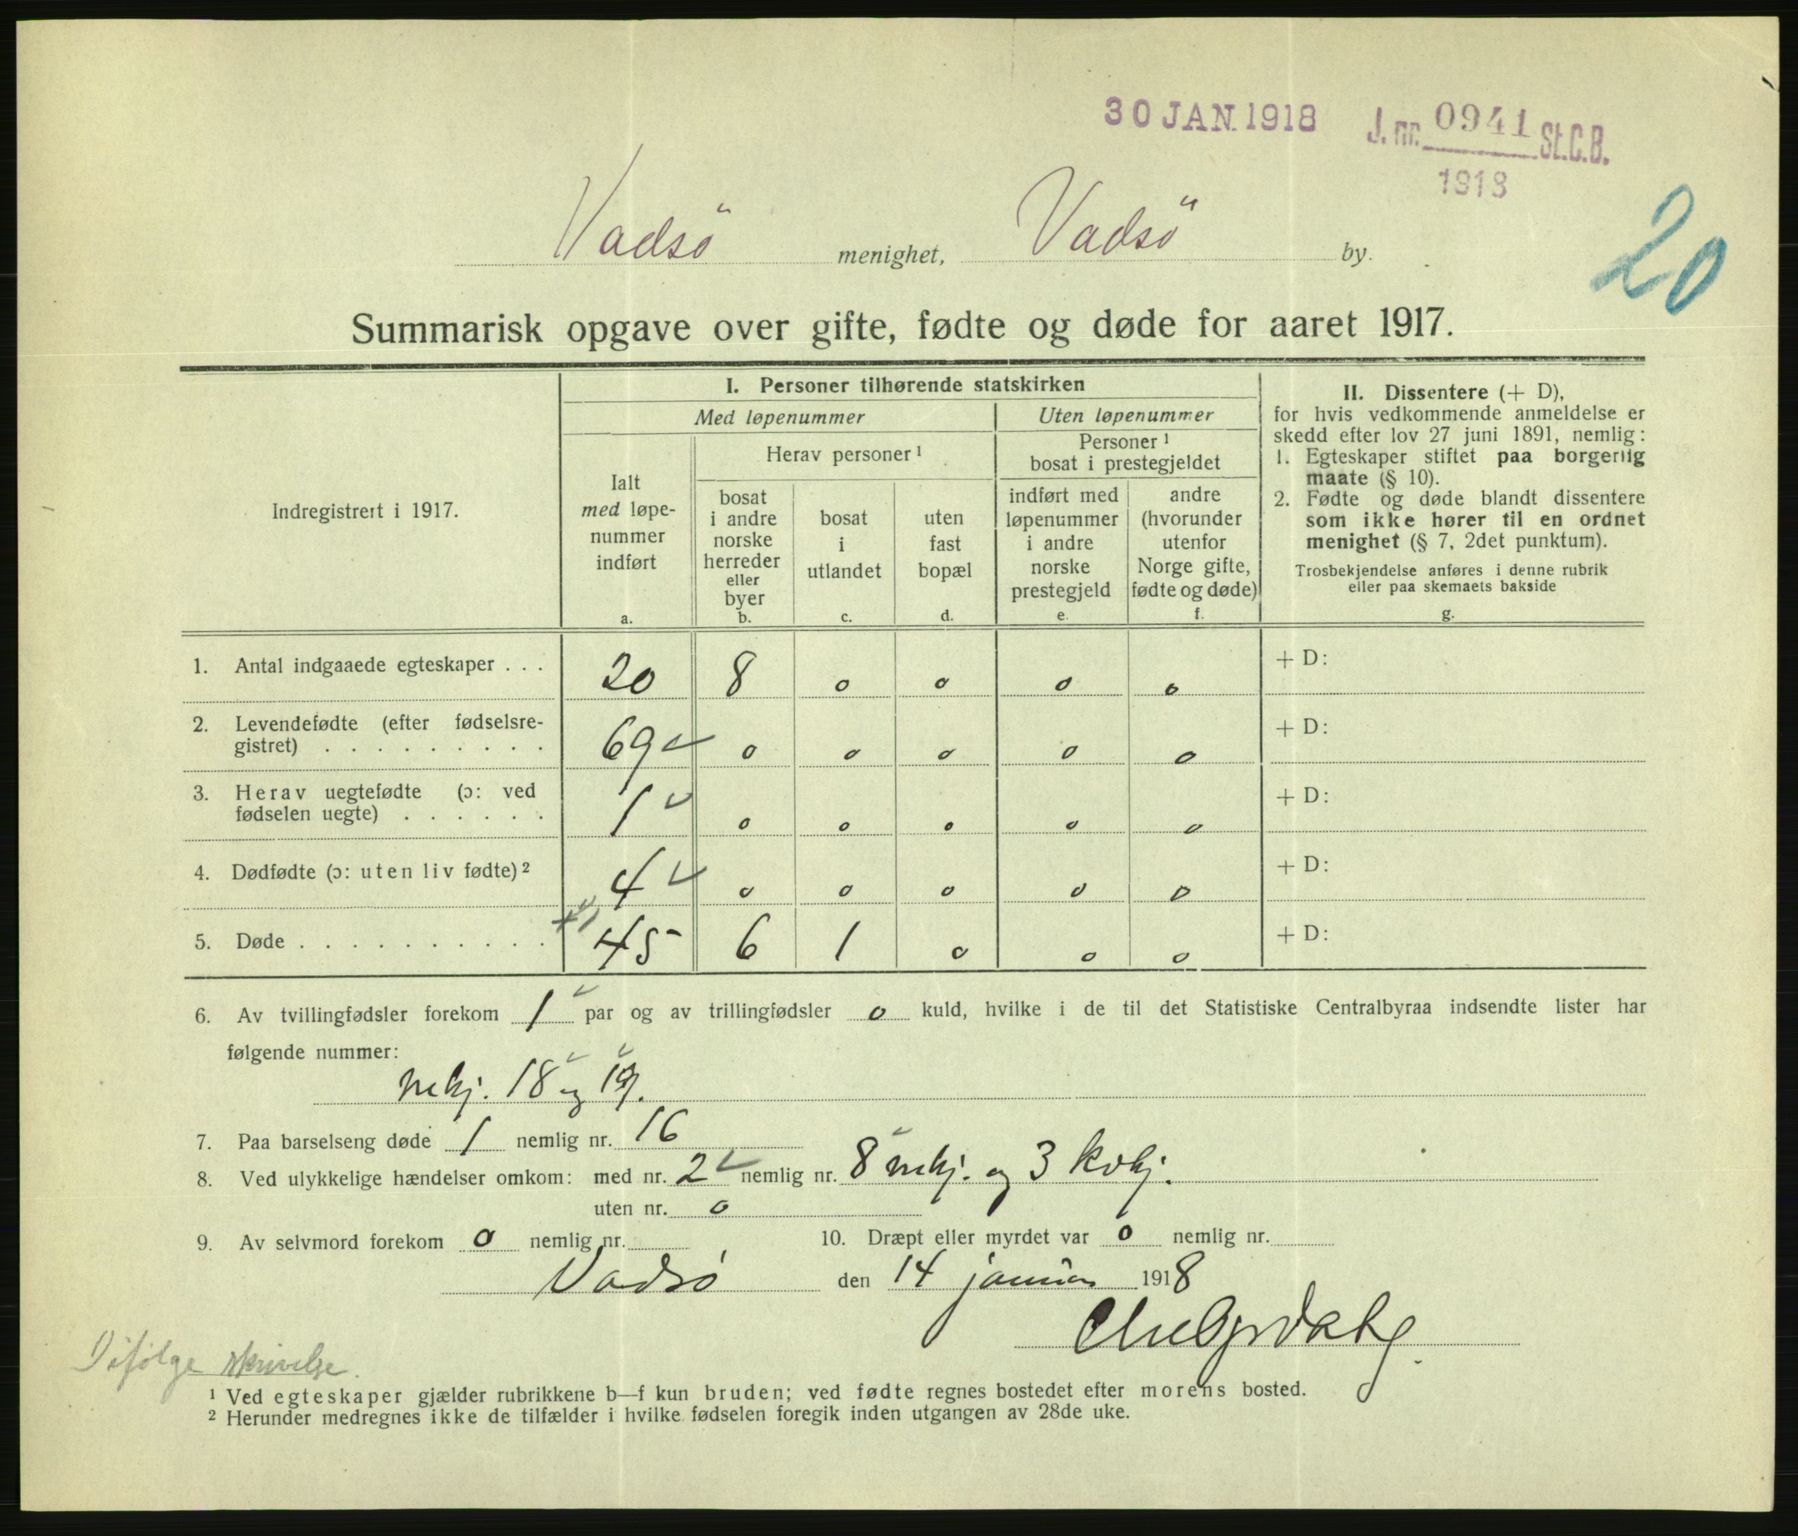 30 JAN. 1918 J. nr. 0941 St.C.B.
1918
20
Vadsö menighet, Vadsö by.
Summarisk opgave over gifte, fødte og døde for aaret 1917.
Indregistrert i 1917.
I. Personer tilhørende statskirken
Med løpenummer
Uten løpenummer
Ialt
med løpe-
nummer
indført
a.
Herav personer ¹
bosat
i andre
norske
herreder
eller
byer
b.
bosat
i
utlandet
c.
uten
fast
bopæl
d.
Personer ¹
bosat i prestegjeldet
indført med
løpenummer
i andre
norske
prestegjeld
e.
andre
(hvorunder
utenfor
Norge gifte,
fødte og døde)
f.
II. Dissentere (+ D),
for hvis vedkommende anmeldelse er
skedd efter lov 27 juni 1891, nemlig:
1. Egteskaper stiftet paa borgerlig
maate (§ 10).
2. Fødte og døde blandt dissentere
som ikke hører til en ordnet
menighet (§ 7, 2det punktum).
Trosbekjendelse anføres i denne rubrik
eller paa skemaets bakside
g.
1. Antal indgaaede egteskaper . . . 20 8 0 0 0 0 + D:
2. Levendefødte (efter fødselsre-
gistret) . . . . . . . . . 69 0 0 0 0 0 + D:
3. Herav uegtefødte (ɔ: ved
fødselen uegte) . . . . . . 1 0 0 0 0 0 + D:
4. Dødfødte (ɔ: uten liv fødte) ² 4 0 0 0 0 0 + D:
5. Døde . . . . . . . . . . 45 6 1 0 0 0 + D:
6. Av tvillingfødsler forekom 1 par og av trillingfødsler 0 kuld, hvilke i de til det Statistiske Centralbyraa indsendte lister har
følgende nummer:
mkj. 18 og 19.
7. Paa barselseng døde 1 nemlig nr. 16
8. Ved ulykkelige hændelser omkom: med nr. 2 nemlig nr. 8 mkj. og 3 kvkj.
uten nr. 0
9. Av selvmord forekom 0 nemlig nr. 10. Dræpt eller myrdet var 0 nemlig nr.
Vadsø den 14 januar 1918
Ifølge skrivelse.
¹ Ved egteskaper gjælder rubrikkene b—f kun bruden; ved fødte regnes bostedet efter morens bosted.
² Herunder medregnes ikke de tilfælder i hvilke fødselen foregik inden utgangen av 28de uke.